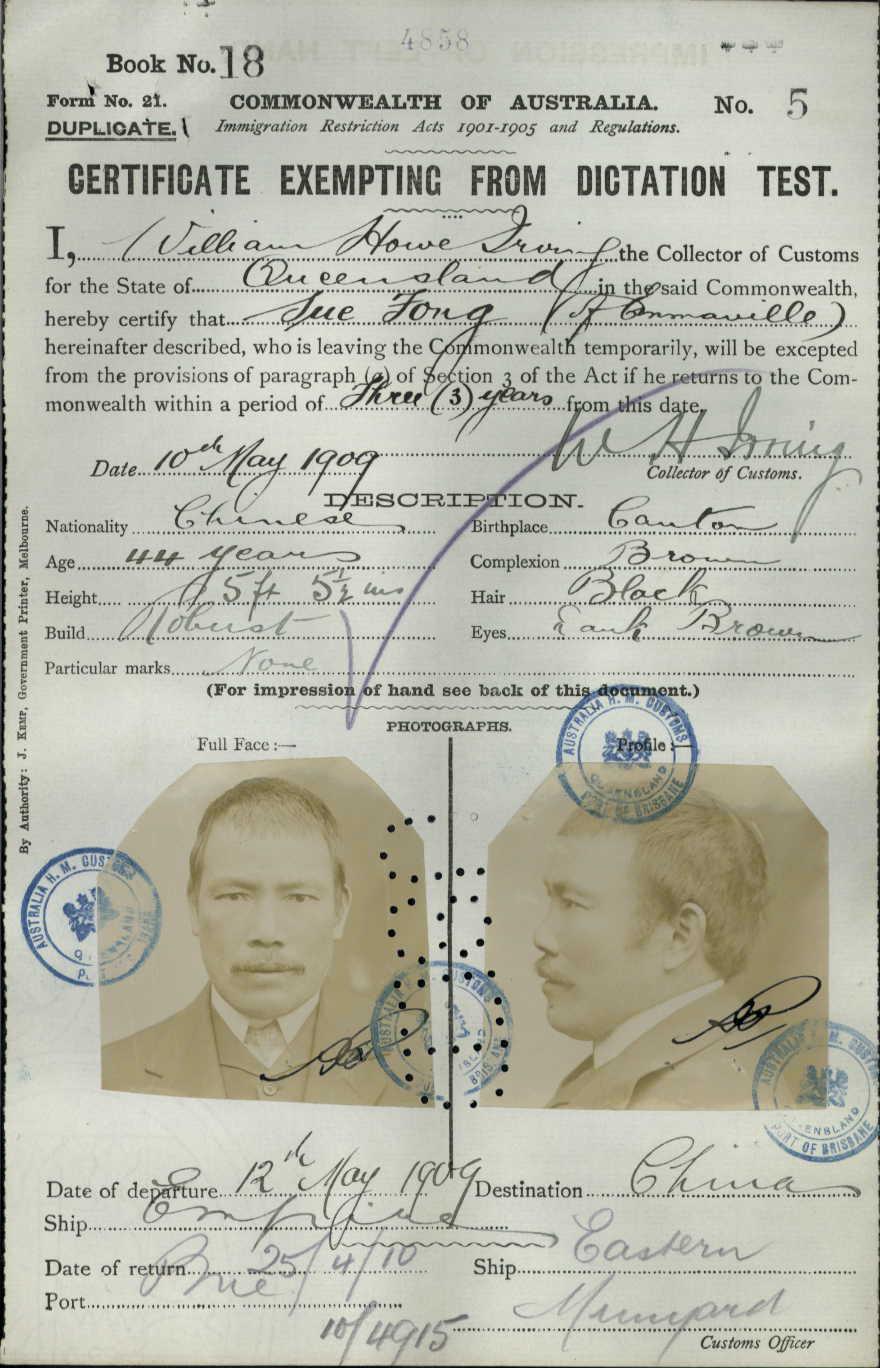 4858
Book No. 18
Form No. 21. COMMONWEALTH OF AUSTRALIA. No. 5
DUPLICATE. Immigration Restriction Acts 1901-1905 and Regulations.
CERTIFICATE EXEMPTING FROM DICTATION TEST.
I, William Howe Irving the Collector of Customs
for the State of Queensland in the said Commonwealth,
hereby certify that Sue Fong (of Emmaville)
hereinafter described, who is leaving the Commonwealth temporarily, will be excepted
from the provisions of paragraph (a) of Section 3 of the Act if he returns to the Com-
monwealth within a period of Three (3) years from this date.
W H Irving
Date 10th May 1909 Collector of Customs.
DESCRIPTION.
Nationality Chinese Birthplace Canton
Age 44 years Complexion Brown
Height 5 ft 5½ ins Hair Black
Build Robust Eyes Dark Brown
Particular marks None
(For impression of hand see back of this document.)
PHOTOGRAPHS.
Full Face:— Profile:—
AUSTRALIA H. M. CUSTOMS QUEENSLAND PORT OF BRISBANE
AUSTRALIA H. M. CUSTOMS
AUSTRALIA H. M. CUSTOMS BRISBANE
AUSTRALIA H. M. CUSTOMS QUEENSLAND PORT OF BRISBANE
Date of departure 12th May 1909 Destination China
Ship Empire
Date of return 25/4/10 Ship Eastern
Port Bne
10/4915
Customs Officer
By Authority: J. Kemp, Government Printer, Melbourne.